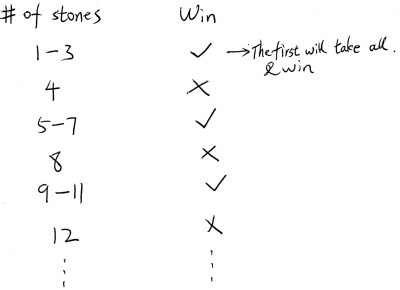 # of stones Win
1-3 ✓ → The first will take all.
& win
4 ✗
5-7 ✓
8 ✗
9-11 ✓
12 ✗
⋮ ⋮